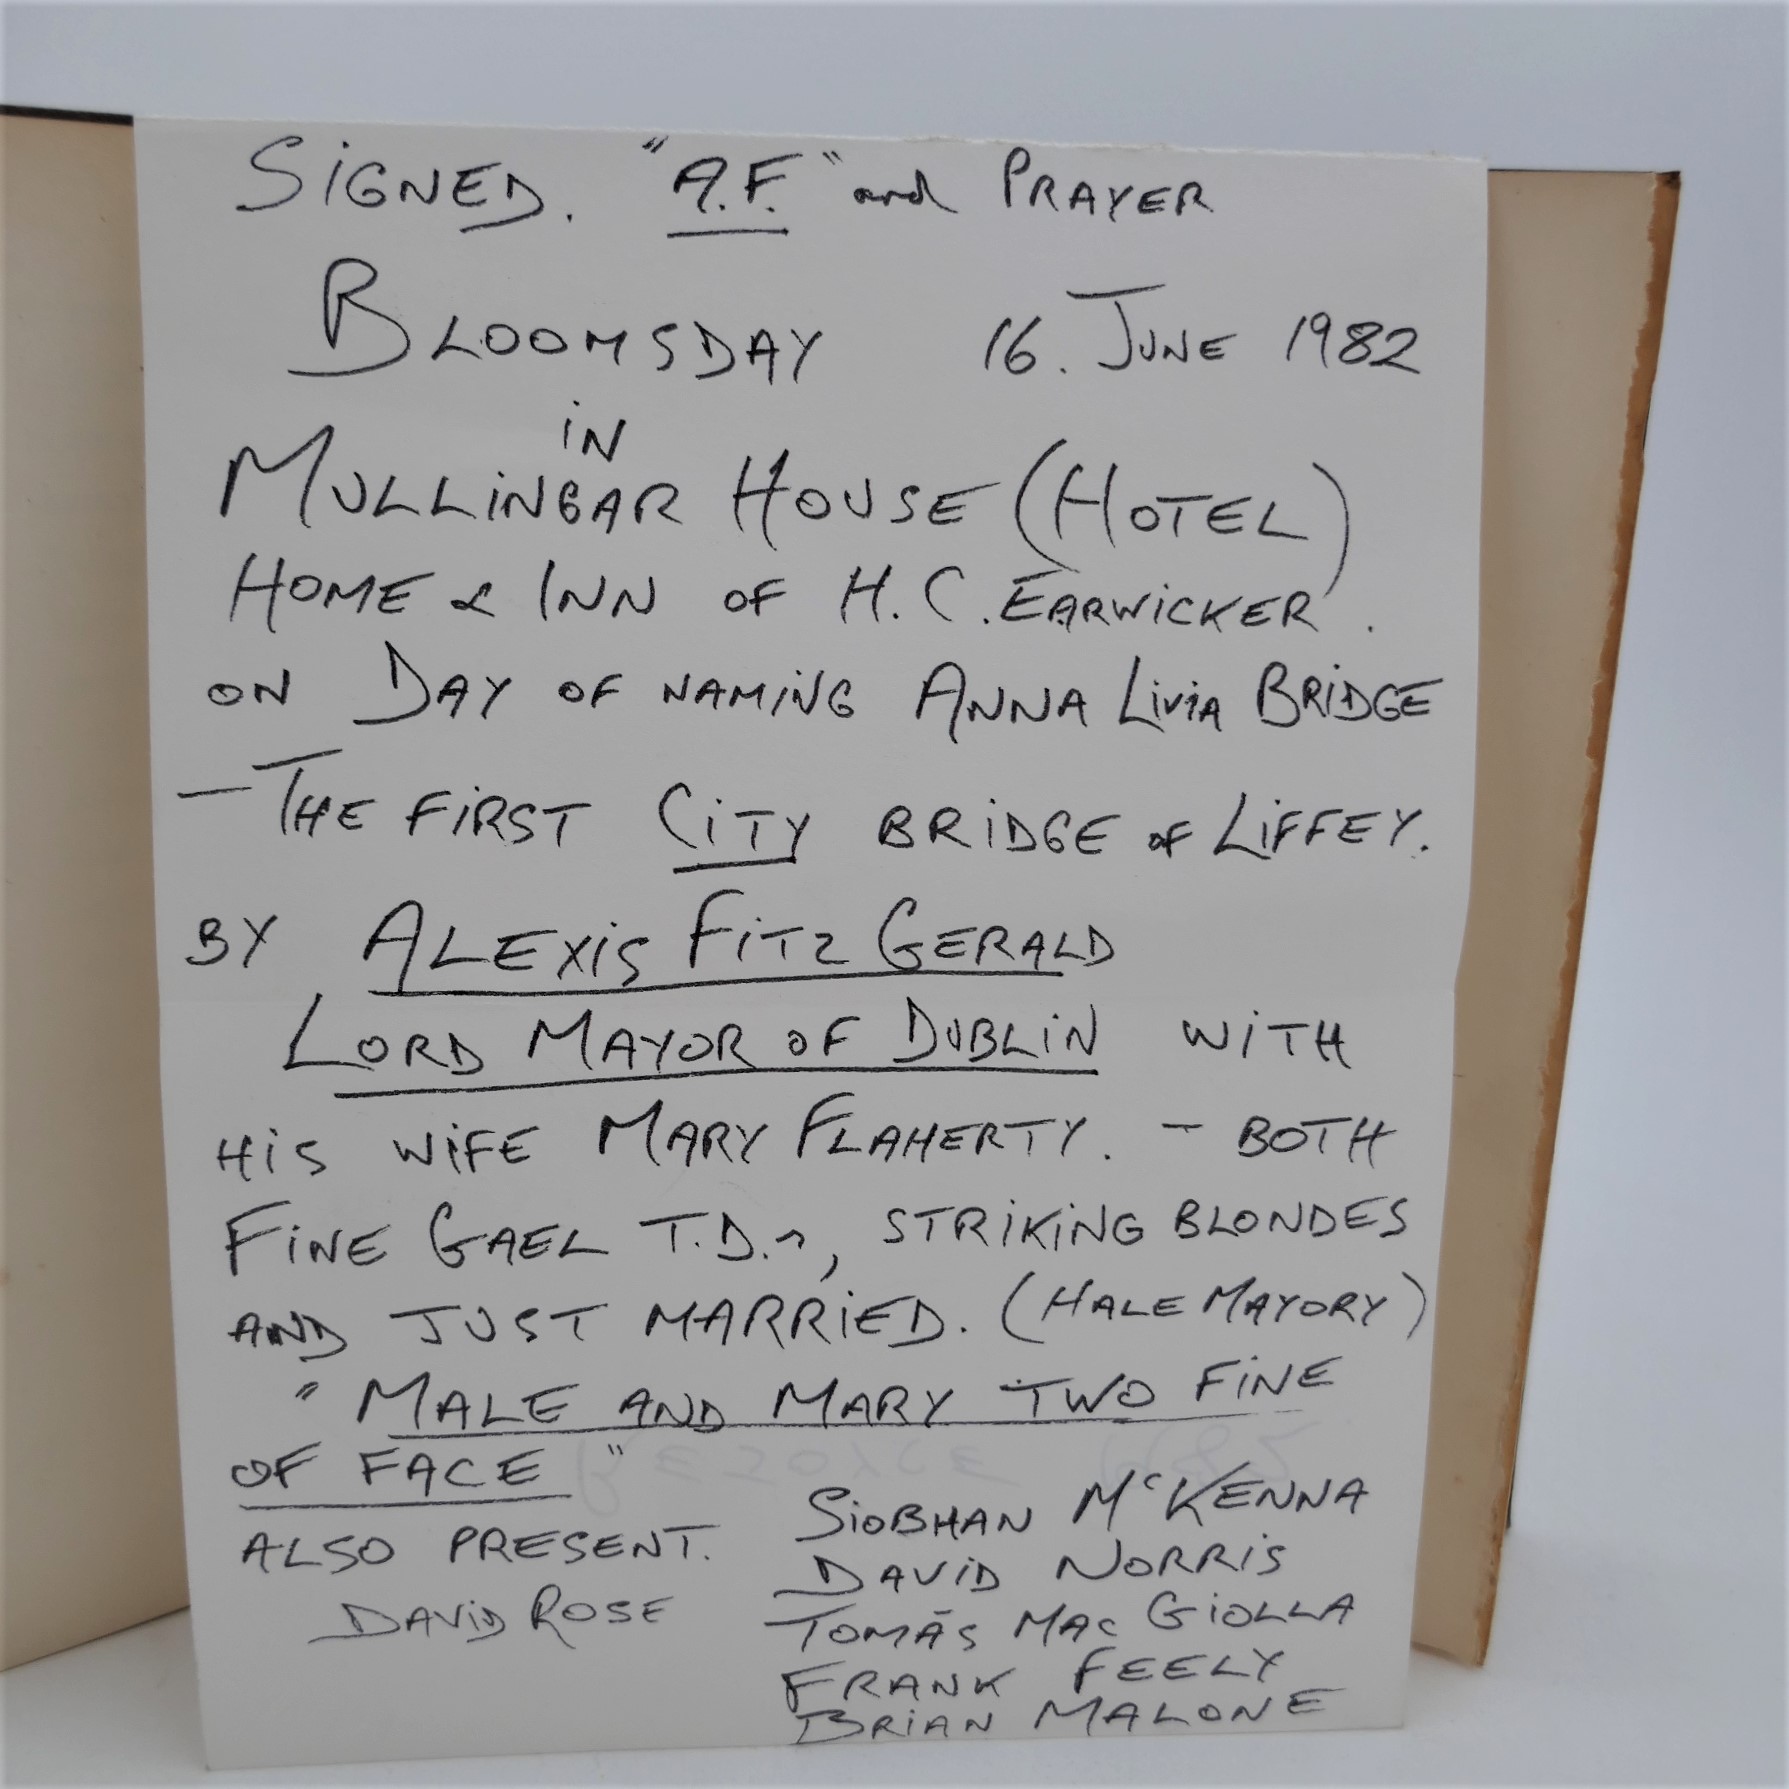 SIGNED. "A.F." and PRAYER
BLOOMSDAY 16. JUNE 1982
IN
MULLINGAR HOUSE (HOTEL)
HOME & INN OF H.C. EARWICKER.
ON DAY OF NAMING ANNA LIVIA BRIDGE
— THE FIRST CITY BRIDGE OF LIFFEY.
BY ALEXIS FITZ GERALD
LORD MAYOR OF DUBLIN WITH
HIS WIFE MARY FLAHERTY. - BOTH
FINE GAEL T.D.s, STRIKING BLONDES
AND JUST MARRIED. (HALE MAYORY)
"MALE AND MARY TWO FINE
OF FACE"
ALSO PRESENT.
DAVID ROSE
SIOBHAN McKENNA
DAVID NORRIS
TOMÁS MAC GIOLLA
FRANK FEELY
BRIAN MALONE